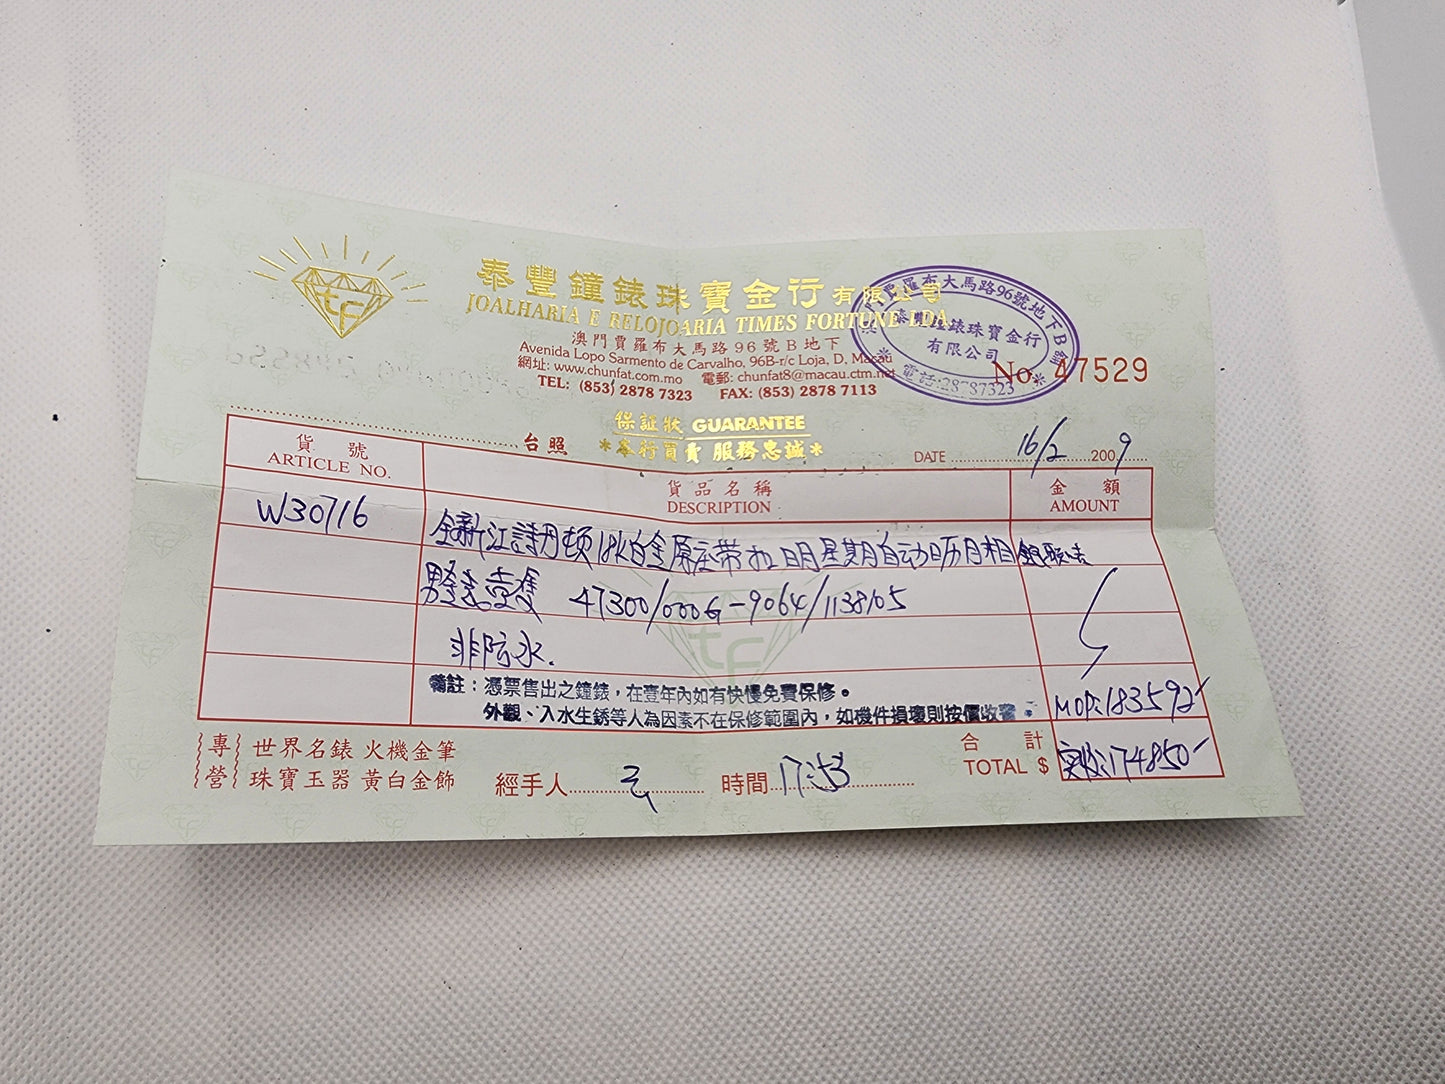 tf
泰豐鐘錶珠寶金行有限公司
JOALHARIA E RELOJOARIA TIMES FORTUNE LDA
澳門賈羅布大馬路96號B地下
Avenida Lopo Sarmento de Carvalho, 96B-r/c Loja, D. Macau
網址: www.chunfat.com.mo 電郵: chunfat8@macau.ctm.net
TEL: (853) 2878 7323 FAX: (853) 2878 7113
賈羅布大馬路96號地下B舖
泰豐鐘錶珠寶金行
有限公司
電話:28787323
No. 47529
保証狀 GUARANTEE
台照
*本行買賣 服務忠誠*
DATE 16/2 2009
貨號
ARTICLE NO.
貨品名稱
DESCRIPTION
金額
AMOUNT
W30716
全新江詩丹顿18K白金原庄带扣日月星期自动日历月相
男錶壹隻 47300/000G-9064/1138105
非防水.
備註：憑票售出之鐘錶，在壹年內如有快慢免費保修。
外觀、入水生銹等人為因素不在保修範圍內，如機件損壞則按價收費。
MOP:183592
合計
TOTAL $
实收:174850
專營
世界名錶 火機金筆
珠寶玉器 黃白金飾
經手人
時間 17:53